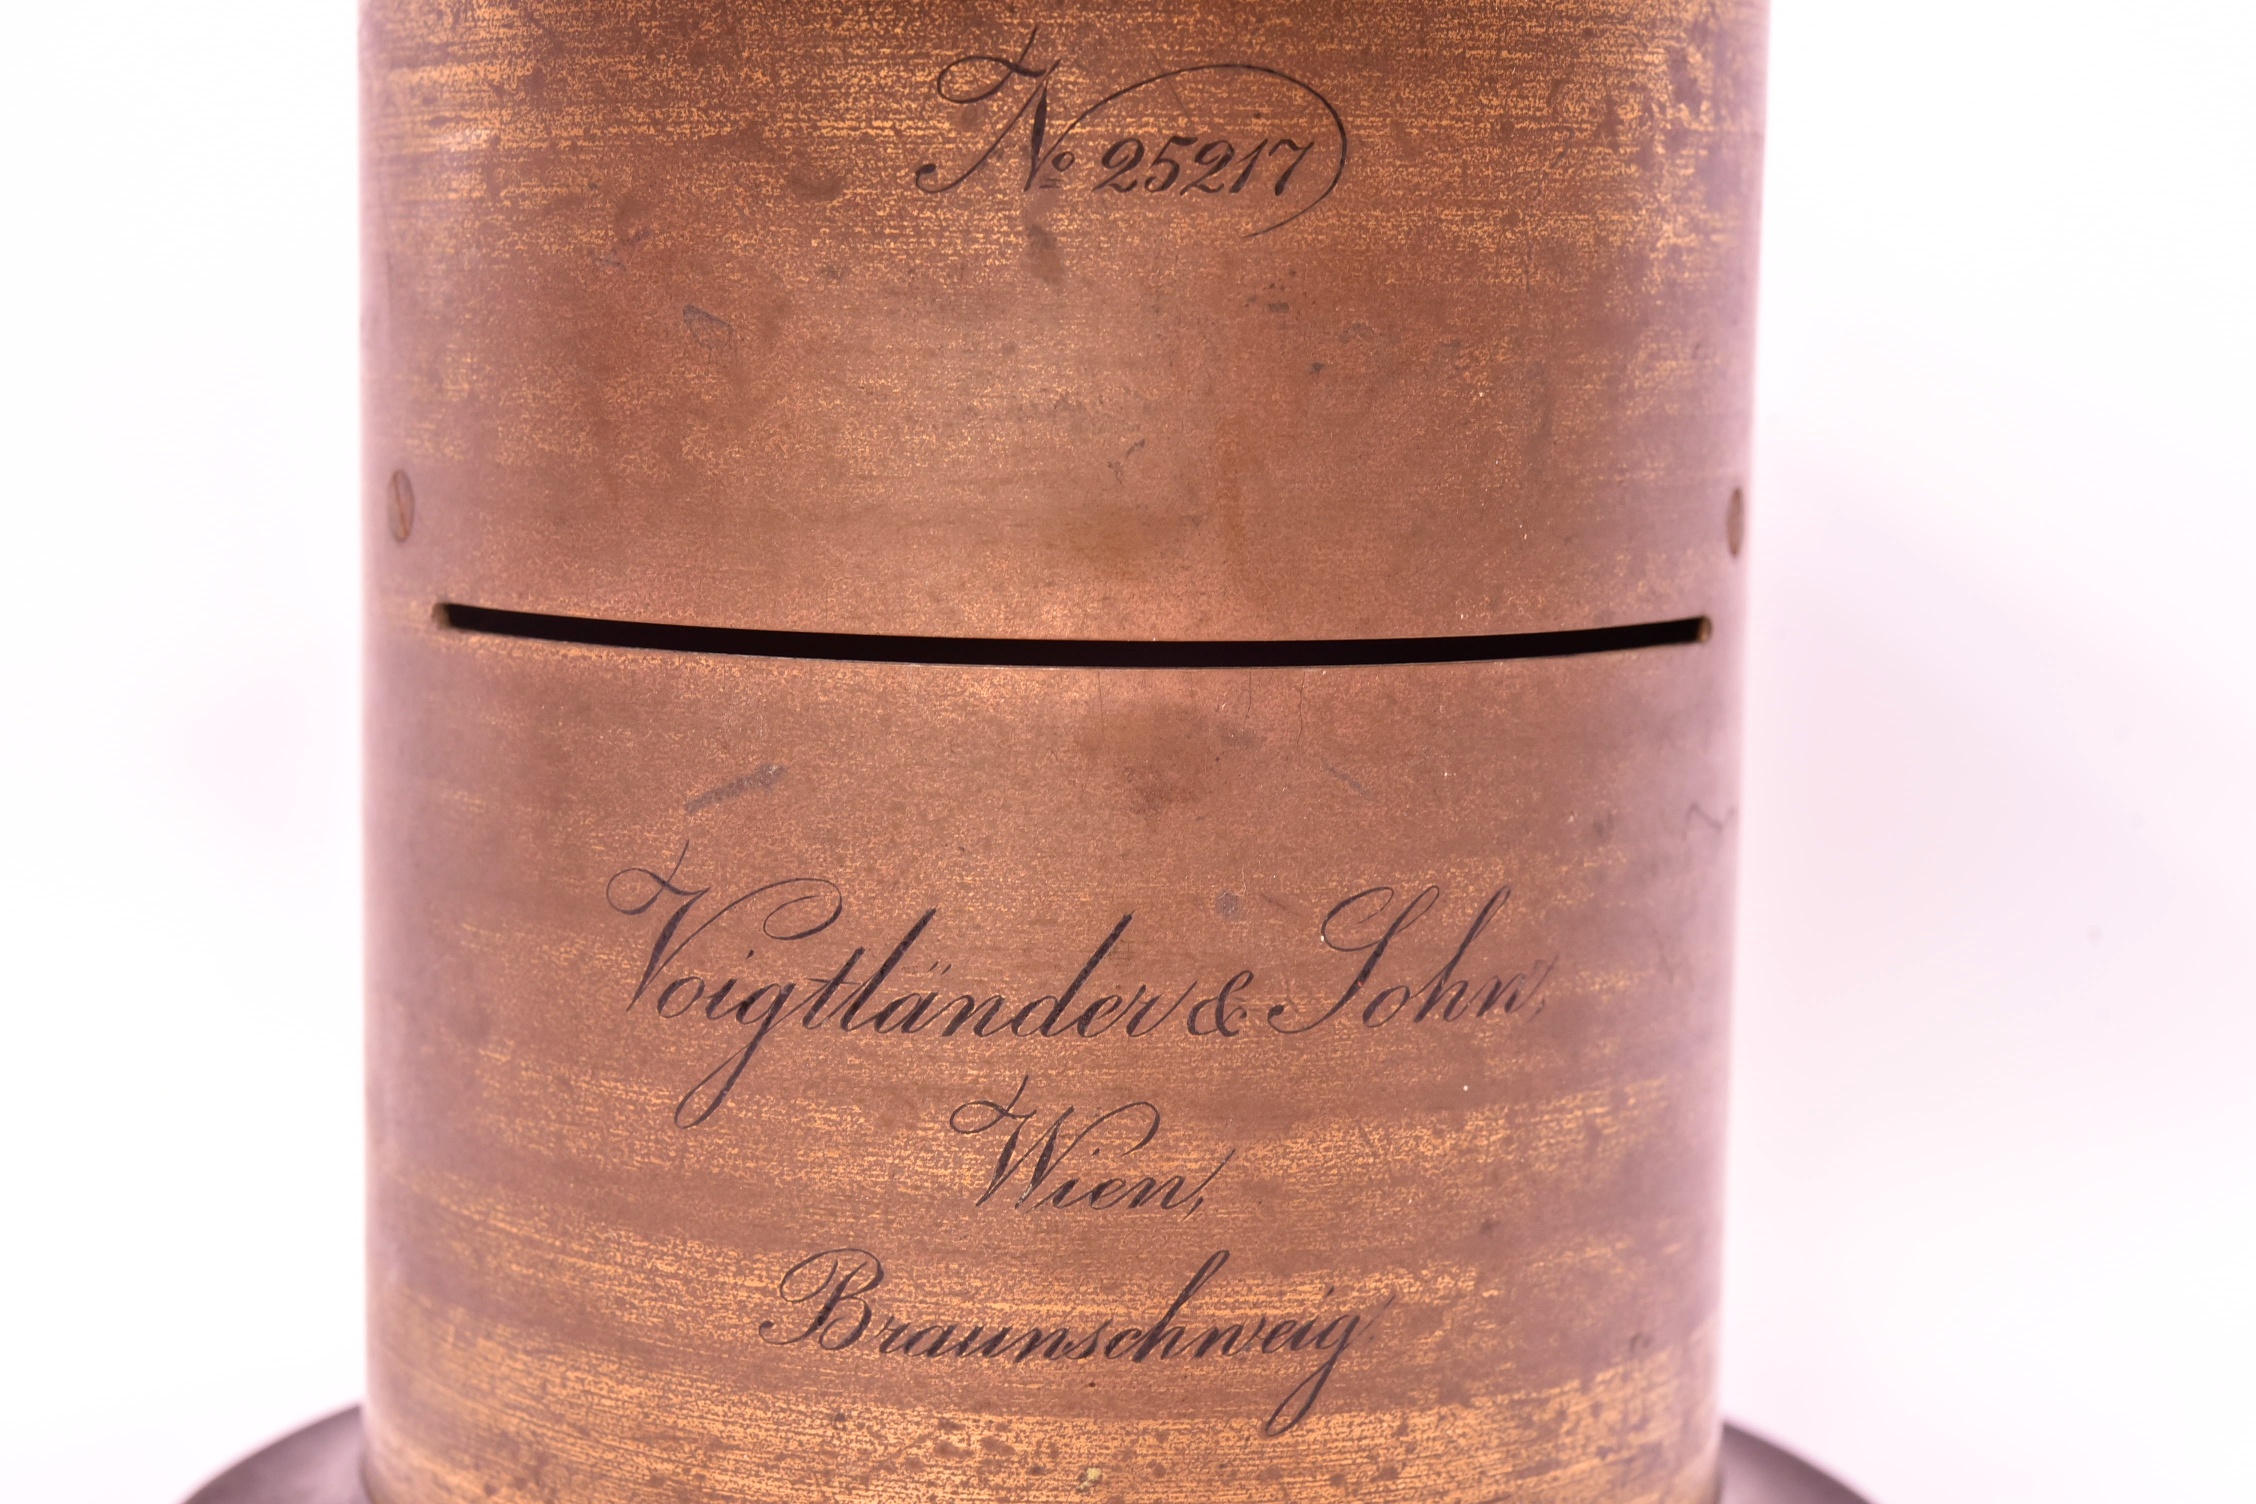 No 25217
Voigtländer & Sohn,
Wien,
Braunschweig